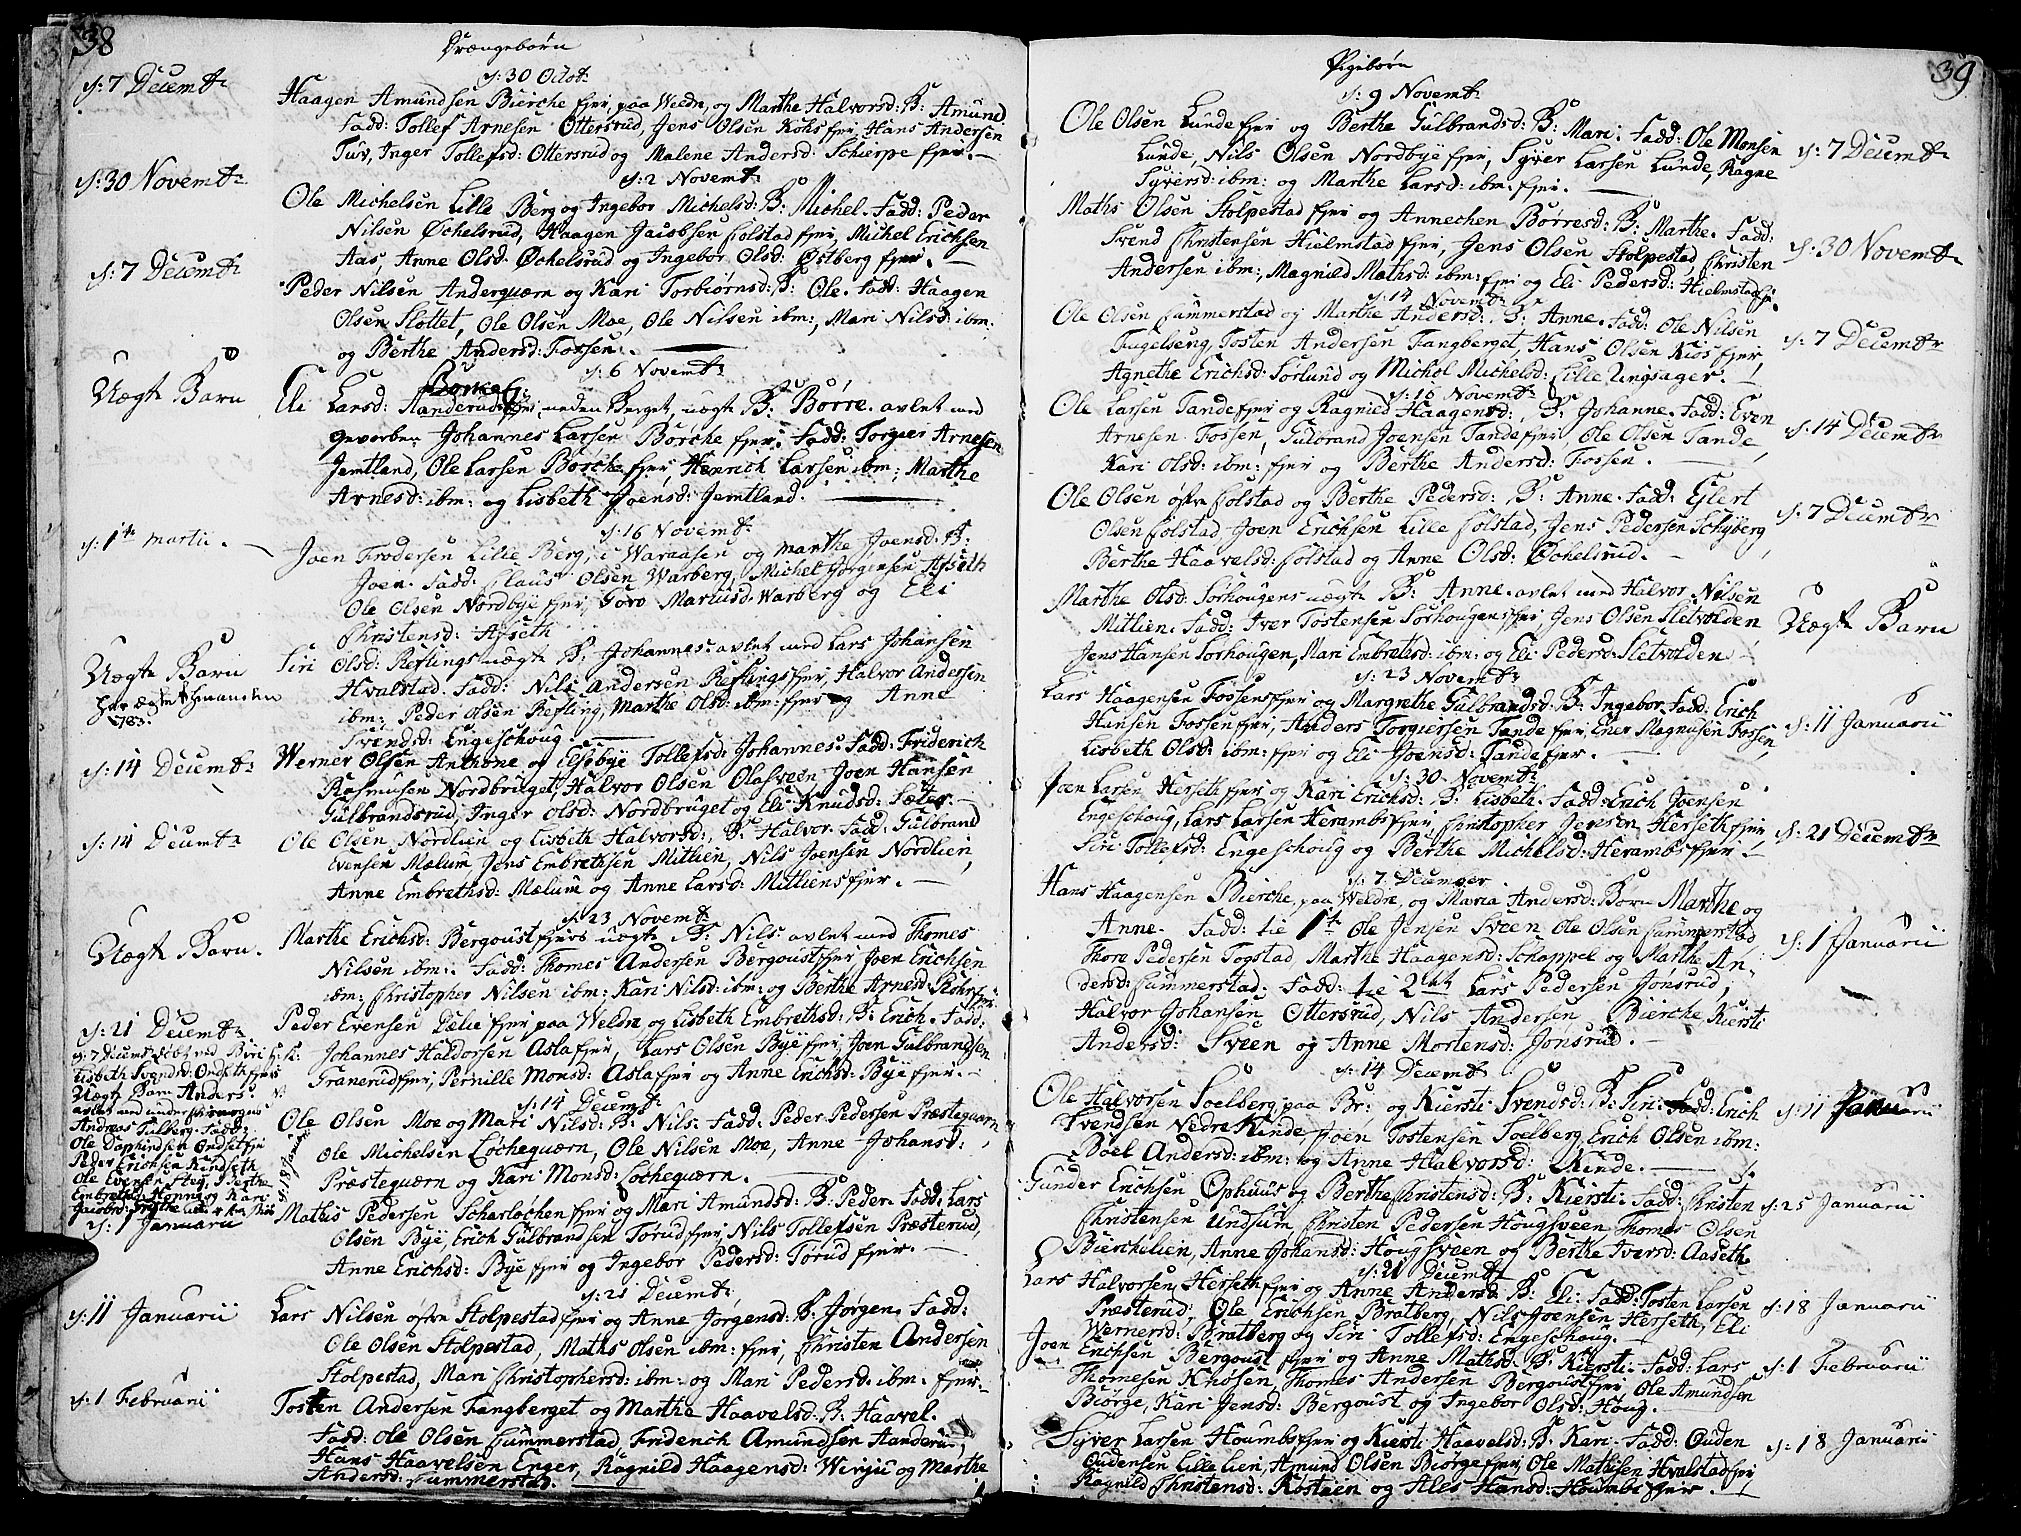 38
Drængebørn
d: 30 Octobr
d: 7 Decembr
Haagen Amundsen Bierche fier, paa Weldre, og Marthe Halvorsd: B: Amund
Fadd: Tollef Arnesen Ottersrud, Jens Olsen Kohs fier, Hans Andersen
Tuv, Inger Tollefsd: Ottersrud og Malene Andersd: Schierpe fier. —
d: 2 Novembr
d: 30 Novembr
Ole Michelsen Lille Berg og Ingebor Michelsd: B: Michel. Fadd: Peder
Nilsen Øchelsrud, Haagen Jacobsen Colstad fier, Michel Erichsen
Aas, Anne Olsd. Øchelsrud og Ingebor Olsd: Østberg fier. —
d: 7 Decembr
Peder Nilsen Anderquærn og Kari Torbiørnsd: B: Ole. Fadd: Haagen
Olsen Slottet, Ole Olsen Moe, Ole Nilsen ibm:, Mari Nilsd: ibm:
og Berthe Andersd: Fossen. —
d: 6 Novembr
Uægte Barn
Eli Larsd: Aanderud fier, neden Berget, uægte B: Børre. avlet med
Johannes Larsen Børche fier. Fadd: Torgier Arnesen
Jemtland, Ole Larsen Børche fier, Henrich Larsen ibm:, Marthe
Arnesd: ibm: og Lisbeth Joensd: Jemtland. —
d: 16 Novembr
d: 1te Martii. —
Joen Frodersen Lille Berg, i Waraasen og Marthe Joensd: B:
Joen. Fadd: Claus Olsen Warberg, Michel Jørgensen Afseth
Ole Olsen Nordbye fier, Goro Mariusd: Warberg og Eli
Christensd: Afseth
Uægte Barn
Har ægtet hinanden
1783.
Siri Olsd: Reflings uægte B: Johannes. avlet med Lars Johansen
Hvalstad. Fadd: Nils Andersen Reflings fier, Halvor Andersen
ibm:, Peder Olsen Refling, Marthe Olsd: ibm: fier og Anne
Svendsd: Engeschoug. —
d: 14 Decembr
Werner Olsen Anthone og Elsebye Tollefsd: Johannes. Fadd: Friderich
Rasmusen Nordbruget, Halvor Olsen Olasveen, Joen Hansen
Gulbrandsrud, Inger Olsd: Nordbruget og Eli Knudsd: Sæter. —
d: 14 Decembr
Ole Olsen Nordlien og Lisbeth Halvorsd:, B: Halvor. Fadd: Gulbrand
Evensen Mælum, Jens Embrethsen Mitlien, Nils Joensen Nordlien,
Anne Embrethsd: Mælum og Anne Larsd: Mitliens fier. —
d: 23 Novembr
Uægte Barn.
Marthe Erichsd: Bergoust fiers uægte B: Nils. avlet med Thomes
Nilsen ibm:. Fadd: Thomes Andersen Bergoust fier, Joen Erichsen
ibm:, Christopher Nilsen ibm:, Kari Nilsd: ibm: og Berthe Arnesd: Rohrs fier.
d: 21 Decembr
Peder Evensen Delie fier paa Weldre og Lisbeth Embrethsd: B: Erich. Fadd:
Johannes Haldorsen Asla fier, Lars Olsen Bye fier, Joen Gulbrandsen
Granerud fier, Pernille Monsd: Asla fier og Anne Erichsd: Bye fier. —
d: 7 Decemb: døbt ved Byri K:
Lisbeth Svendsd: Ondseth fiers
Uægte Barn Anders.
avlet med
Andreas Fadd:
Ole Ondset fier
Peder Erichsen Kindseth
Ole Evensen Steg, Berthe
Embretsd: Honne og Kari
Jacobsd:
d: 18 Januarii
d: 14 Decembr
Ole Olsen Moe og Mari Nilsd: B: Nils. Fadd: Peder Pedersen Præstequærn,
Ole Michelsen Løchequærn, Ole Nilsen Moe, Anne Johansd:
Præstequærn og Kari Monsd: Løchequærn. —
d: 1 Januarii
Mathis Pedersen Scharløchen fier og Mari Amundsd: B: Peder. Fadd: Lars
Olsen Bye, Erich Gulbrandsen Torud fier, Nils Tollefsen Præsterud,
Anne Erichsd: Bye fier og Ingebor Pedersd: Torud fier. —
d: 21 Decembr
d: 11 Januarii
Lars Nilsen øfre Stolpestad fier og Anne Jørgensd: B: Jørgen. Fadd:
Ole Olsen Stolpestad, Maths Olsen ibm: fier, Christen Andersen
Stolpestad, Mari Christophersd: ibm: og Mari Pedersd: ibm: fier. —
d: 1 Februarii
Tosten Andersen Fangberget og Marthe Haavelsd: B: Haavel.
Fadd: Ole Olsen Cummerstad, Friderich Amundsen Aanderud,
Hans Haavelsen Enger, Ragnild Haagensd: Wergie og Marthe
Andersd: Cummerstad. —
39
Pigebørn
d: 9 Novembr
Ole Olsen Lunde fier og Berthe Gulbrandsd: B: Mari. Fadd: Ole Monsen
Lunde, Nils Olsen Nordbye fier, Syver Larsen Lunde, Ragne
Syversd: ibm: og Marthe Larsd: ibm: fier. —
d: 7 Decembr
Maths Olsen Stolpestad fier og Annechen Børresd: B: Marthe. Fadd:
Svend Christensen Hielmstad fier, Jens Olsen Stolpestad, Christen
Andersen ibm:, Magnild Mathsd: ibm: fier og Eli Pedersd: Hielmstad fier.
d: 30 Novembr
d: 14 Novembr
Ole Olsen Cummerstad og Marthe Andersd: B: Anne. Fadd: Ole Nilsen
Fugelseng, Tosten Andersen Fangberget, Hans Olsen Kios fier,
Agnethe Erichsd: Sørlund og Michel Michelsd: Lille Ringsager. —
d: 7 Decembr
d: 16 Novembr
Ole Larsen Tande fier og Ragnild Haagensd: B: Johanne. Fadd: Even
Arnesen Fossen, Gulbrand Joensen Tande fier, Ole Olsen Tande,
Kari Olsd: ibm: fier og Berthe Andersd: Fossen. —
d: 14 Decembr
Ole Olsen øfre Colstad og Berthe Pedersd: B: Anne. Fadd: Eilert
Olsen Colstad, Joen Erichsen Lille Colstad, Jens Pedersen Schyberg,
Berthe Haavelsd: Colstad og Anne Olsd: Øchelsrud. —
d: 7 Decembr
Marthe Olsd: Sorhougens uægte B: Anne. avlet med Halvor Nilsen
Mitlien. Fadd: Iver Tostensen Sorhougens fier, Jens Olsen Sletvolden
Jens Hansen Sorhougen, Mari Embretsd: ibm: og Eli Pedersd: Sletvolden —
Uægte Barn
d: 23 Novembr
Lars Haagensen Fossens fier og Margrethe Gulbrandsd: B: Ingebor. Fadd: Erich
Hansen Fossen fier, Anders Torgiersen Tande fier, Ener Magnusen Fossen,
Lisbeth Olsd: ibm: fier og Eli Joensd: Tande fier. —
d: 11 Januarii
d: 30 Novembr
Joen Larsen Herseth fier og Kari Erichsd: B: Lisbeth. Fadd: Erich Joensen
Engeschoug, Lars Larsen Herambs fier, Christopher Jensen Herseth fier,
Siri Tollefsd: Engeschoug og Berthe Michelsd: Herambs fier. —
d: 21 Decembr
d: 7 December
Hans Haagensen Bierche, paa Weldre, og Maria Andersd: Børn Marthe og
Anne. Fadd: tie 1te Ole Jensen Sveen, Ole Olsen Cummerstad,
Thore Pedersen Togstad, Marthe Haagensd: Schappel og Marthe An-
dersd: Cummerstad. Fadd: tie 2det Lars Pedersen Jonsrud,
Halvor Johansen Ottersrud, Nils Andersen Bierche, Kiersti
Andersd: Sveen og Anne Mortensd: Jonsrud. —
d: 1 Januarii
d: 14 Decembr
Ole Halvorsen Soelberg, paa Br: og Kiersti Svendsd: B: Siri. Fadd: Erich
Svendsen Nedre Kinde, Joen Tostensen Soelberg, Erich Olsen ibm:
Boel Andersd: ibm: og Anne Halvorsd: Kinde. —
d: 11 Januarii
Gunder Erichsen Ophuus og Berthe Christensd: B: Kiersti. Fadd: Christen
Christensen Undsum, Christen Pedersen Hougsveen, Thomas Olsen
Bierchelien, Anne Johansd: Hougsveen og Berthe Iversd: Aaseth
d: 25 Januarii
d: 21 Decembr
Lars Halvorsen Herseth fier og Anne Andersd: B: Eli. Fadd: Tosten Larsen
Præsterud, Ole Erichsen Bratberg, Nils Joensen Herseth, Eli
Wernersd: Bratberg og Siri Tollefsd: Engeschoug. —
d: 18 Januarii
Joen Erichsen Bergoust fier og Anne Mathsd: B: Kiersti. Fadd: Lars
Thomesen Knosen, Thomes Andersen Bergoust fier, Ole Amundsen
Biørge, Kari Jensd: Bergoust og Ingebor Olsd: Houg.
d: 1 Februarii
Syver Larsen Houmbs fier og Kiersti Haavelsd: B: Kari. Fadd: Ouden
Oudensen Lille Lien, Amund Olsen Biørge fier, Ole Mathisen Hvalstad fier,
Ragnild Christensd: Kostuen og Ales Hansd: Houmbs fier. —
d: 18 Januarii